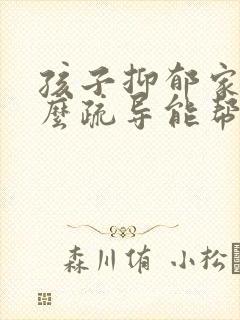 孩子抑郁家
麼疏导能帮
森川侑 小松